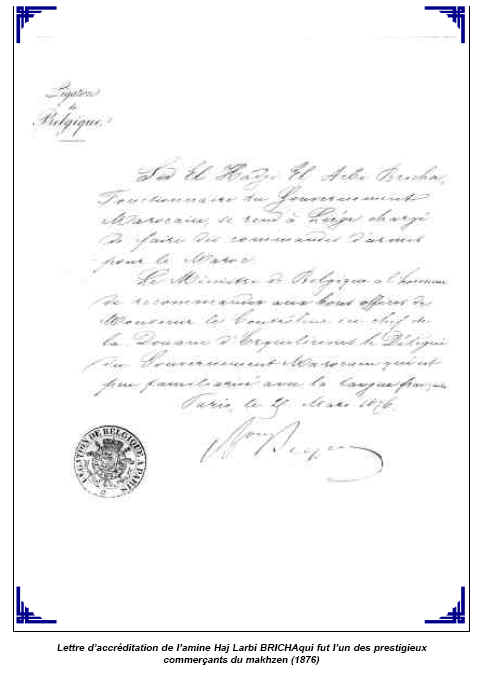 Légation
de
Belgique.
Sid El Hadj El Arbi Bricha,
Fonctionnaire du Gouvernement
Marocain, se rend à Liège chargé
de faire des commandes d'armes
pour le Maroc.
Le Ministre de Belgique a l'honneur
de recommander aux bons offices de
Monsieur le Contrôleur en chef de
la Douane d'Erquelinnes le Délégué
du Gouvernement Marocain qui est
peu familiarisé avec la langue française
Paris, le 25 Mars 1876.
LEGATION DE BELGIQUE A PARIS
Lettre d'accréditation de l'amine Haj Larbi BRICHAqui fut l'un des prestigieux
commerçants du makhzen (1876)